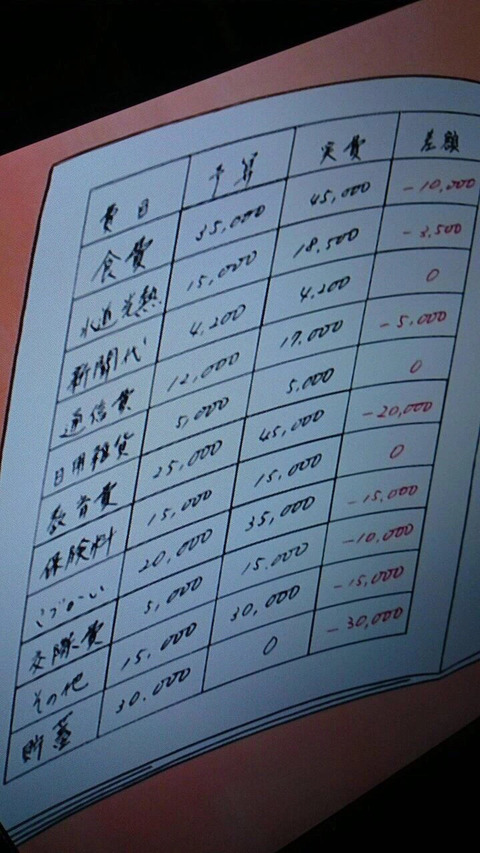 費目 予算 実費 差額
食費 35,000 45,000 -10,000
水道光熱 15,000 18,500 -3,500
新聞代 4,200 4,200 0
通信費 12,000 17,000 -5,000
日用雑貨 5,000 5,000 0
教育費 25,000 45,000 -20,000
保険料 15,000 15,000 0
こづかい 20,000 35,000 -15,000
交際費 5,000 15.000 -10,000
その他 15,000 30,000 -15,000
貯蓄 30.000 0 -30,000